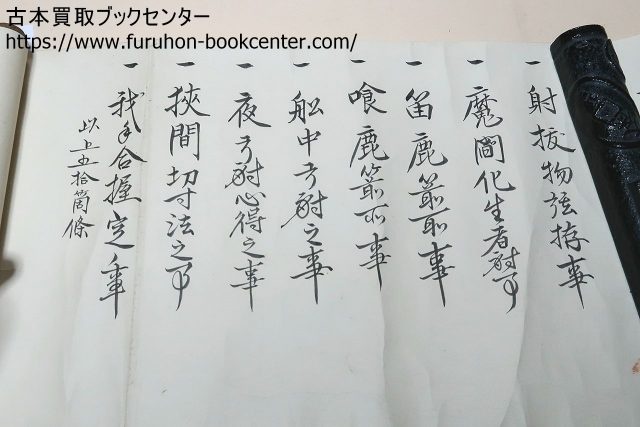 古本買取ブックセンター
https://www.furuhon-bookcenter.com/
一 射抜物弦掎事
一 魔閫化生者射事
一 笛鹿箭所事
一 喰鹿箭所事
一 舩中ニ而射之事
一 夜ニ而射心得之事
一 狭間切寸法之事
一 我手合握定之事
以上五拾箇條